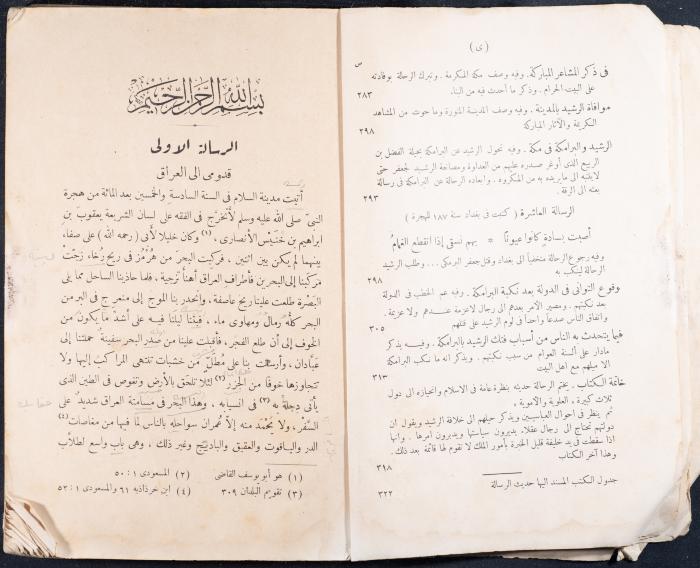 (ى)
ص
فى ذكر المشاعر المباركة. وفيه وصف مكة المكرمة. وتبرك الرحالة بوفادته
على البيت الحرام. وذكر ما أحدث فيه من البناء.
٢٨٣
موافاة الرشيد بالمدينة. وفيه وصف المدينة المنورة وما حوت من المشاهد
الكريمة والآثار المباركة
٢٩٨
الرشيد والبرامكة فى مكة. وفيه تحول الرشيد عن البرامكة بحيلة الفضل بن
الربيع الذى أوغر صدره عليهم من العداوة ومصانعة الرشيد لجعفر حتى
لا ينتبه الى ما يريده به من المكروه. وابعاده الرحالة عن البرامكة فى رسالة
بعثه الى الرقة.
٢٩٣
الرسالة العاشرة (كتبت فى بغداد سنة ١٨٧ للهجرة)
أصبت بسادة كانوا عيوناً * بهم نسقى إذا انقطع الغمامُ
وفيه رجوع الرحالة متخفياً الى بغداد وقتل جعفر البرمكى... وطلب الرشيد
الرحالة لينكب به
٢٩٨
وقوع التوانى فى الدولة بعد نكبة البرامكة. وفيه عم الخطب فى الدولة
بعد نكبتهم. ومصير الأمر بعدهم الى رجال لا عزمة عندهم ولا عزيمة.
واتفاق الناس صدعاً واحداً فى لوم الرشيد على قتلهم
٣٠٥
فيما يتحدث به الناس من أسباب فتك الرشيد بالبرامكة. وفيه يذكر
مادار على ألسنة العوام من سبب نكبتهم. ويذكر انه ما نكب البرامكة
الا ميلهم مع اهل البيت
٣١٣
خاتمة الكتاب. يختم الرحالة حديثه بنظرة عامة فى الاسلام وانحيازه الى دول
ثلاث كبيرة، العلوية والأموية،
ثم ينظر فى احوال العباسيين ويذكر حيلهم الى خلافة الرشيد ويقول ان
دولتهم تحتاج الى رجال عقلاء يديرون سياستها ويدبرون أمرها. وانها
اذا سقطت فى يد خليفة قليل الخبرة بأمور الملك لا تقوم لها قائمة بعد ذلك.
وهذا آخر الكتاب
٣٩٨
جدول الكتب المسند اليها حديث الرسالة
٣٢٢
بسم الله الرحمن الرحيم
الرسالة الاولى
قدومى الى العراق
أتيت مدينة السلام فى السنة السادسة والخمسين بعد المائة من هجرة
النبىّ صلى الله عليه وسلم لأتخرّج فى الفقه على لسان الشريعة يعقوب بن
ابراهيم بن خُنَيْس الأنصارى، (١) وكان خليلا لأبى (رحمه الله) على صفاء
بينهما لم يكن بين اثنين، فركبت البحر من هُرْمُز فى ريح رُخاء زجّت
مركبنا إلى البحرين فأطراف العراق أهنأ تزجية، فلما حاذينا الساحل مما يلى
البَصْرة طلعت علينا ريح عاصفة، وانحدر بنا الموج الى منعرج فى البر من
البحر كله رمال ومهاوى ماء، فبتنا ليلتنا فيه على أشدّ ما يكون من
الخوف إلى أن طلع الفجر، فأقبلت علينا من صدر البحر سفينة حملتنا إلى
عبّادان، وأرست بنا على مطلّ من خشبات تنتهى المراكب إليها ولا
تتجاوزها خوفا من الجزر (٢) لئلا تلحق بالأرض وتغوص فى الطين الذى
يأتى دجلة به (٣) فى انسيابه، وهذا البحر فى مسامتة العراق شديد على
السَّفْر، ولا يحمَد منه إلا عمران سواحله بالناس لما فيها من مغاصات (٤)
الدر والياقوت والعقيق والباديج وغير ذلك، وهى باب واسع لطلاب
(١) هو أبو يوسف القاضى (٢) المسعودى ١: ٥٠
(٣) تقويم البلدان ٣٠٩ (٤) ابن خرذاذبه ٦١ والمسعودى ١: ٥٢